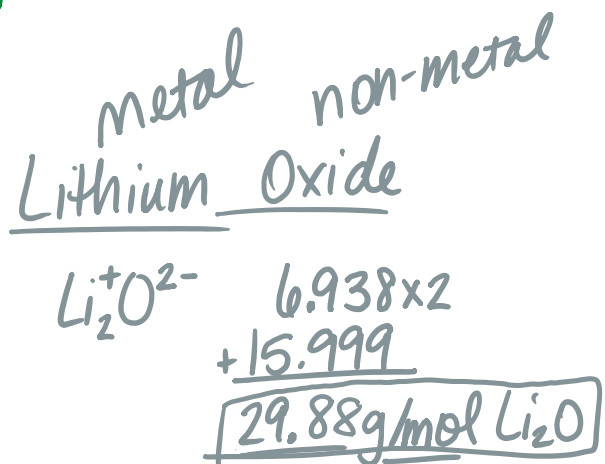 metal non-metal
Lithium Oxide
Li₂⁺O²⁻ 6.938x2
+15.999
29.88g/mol Li₂O